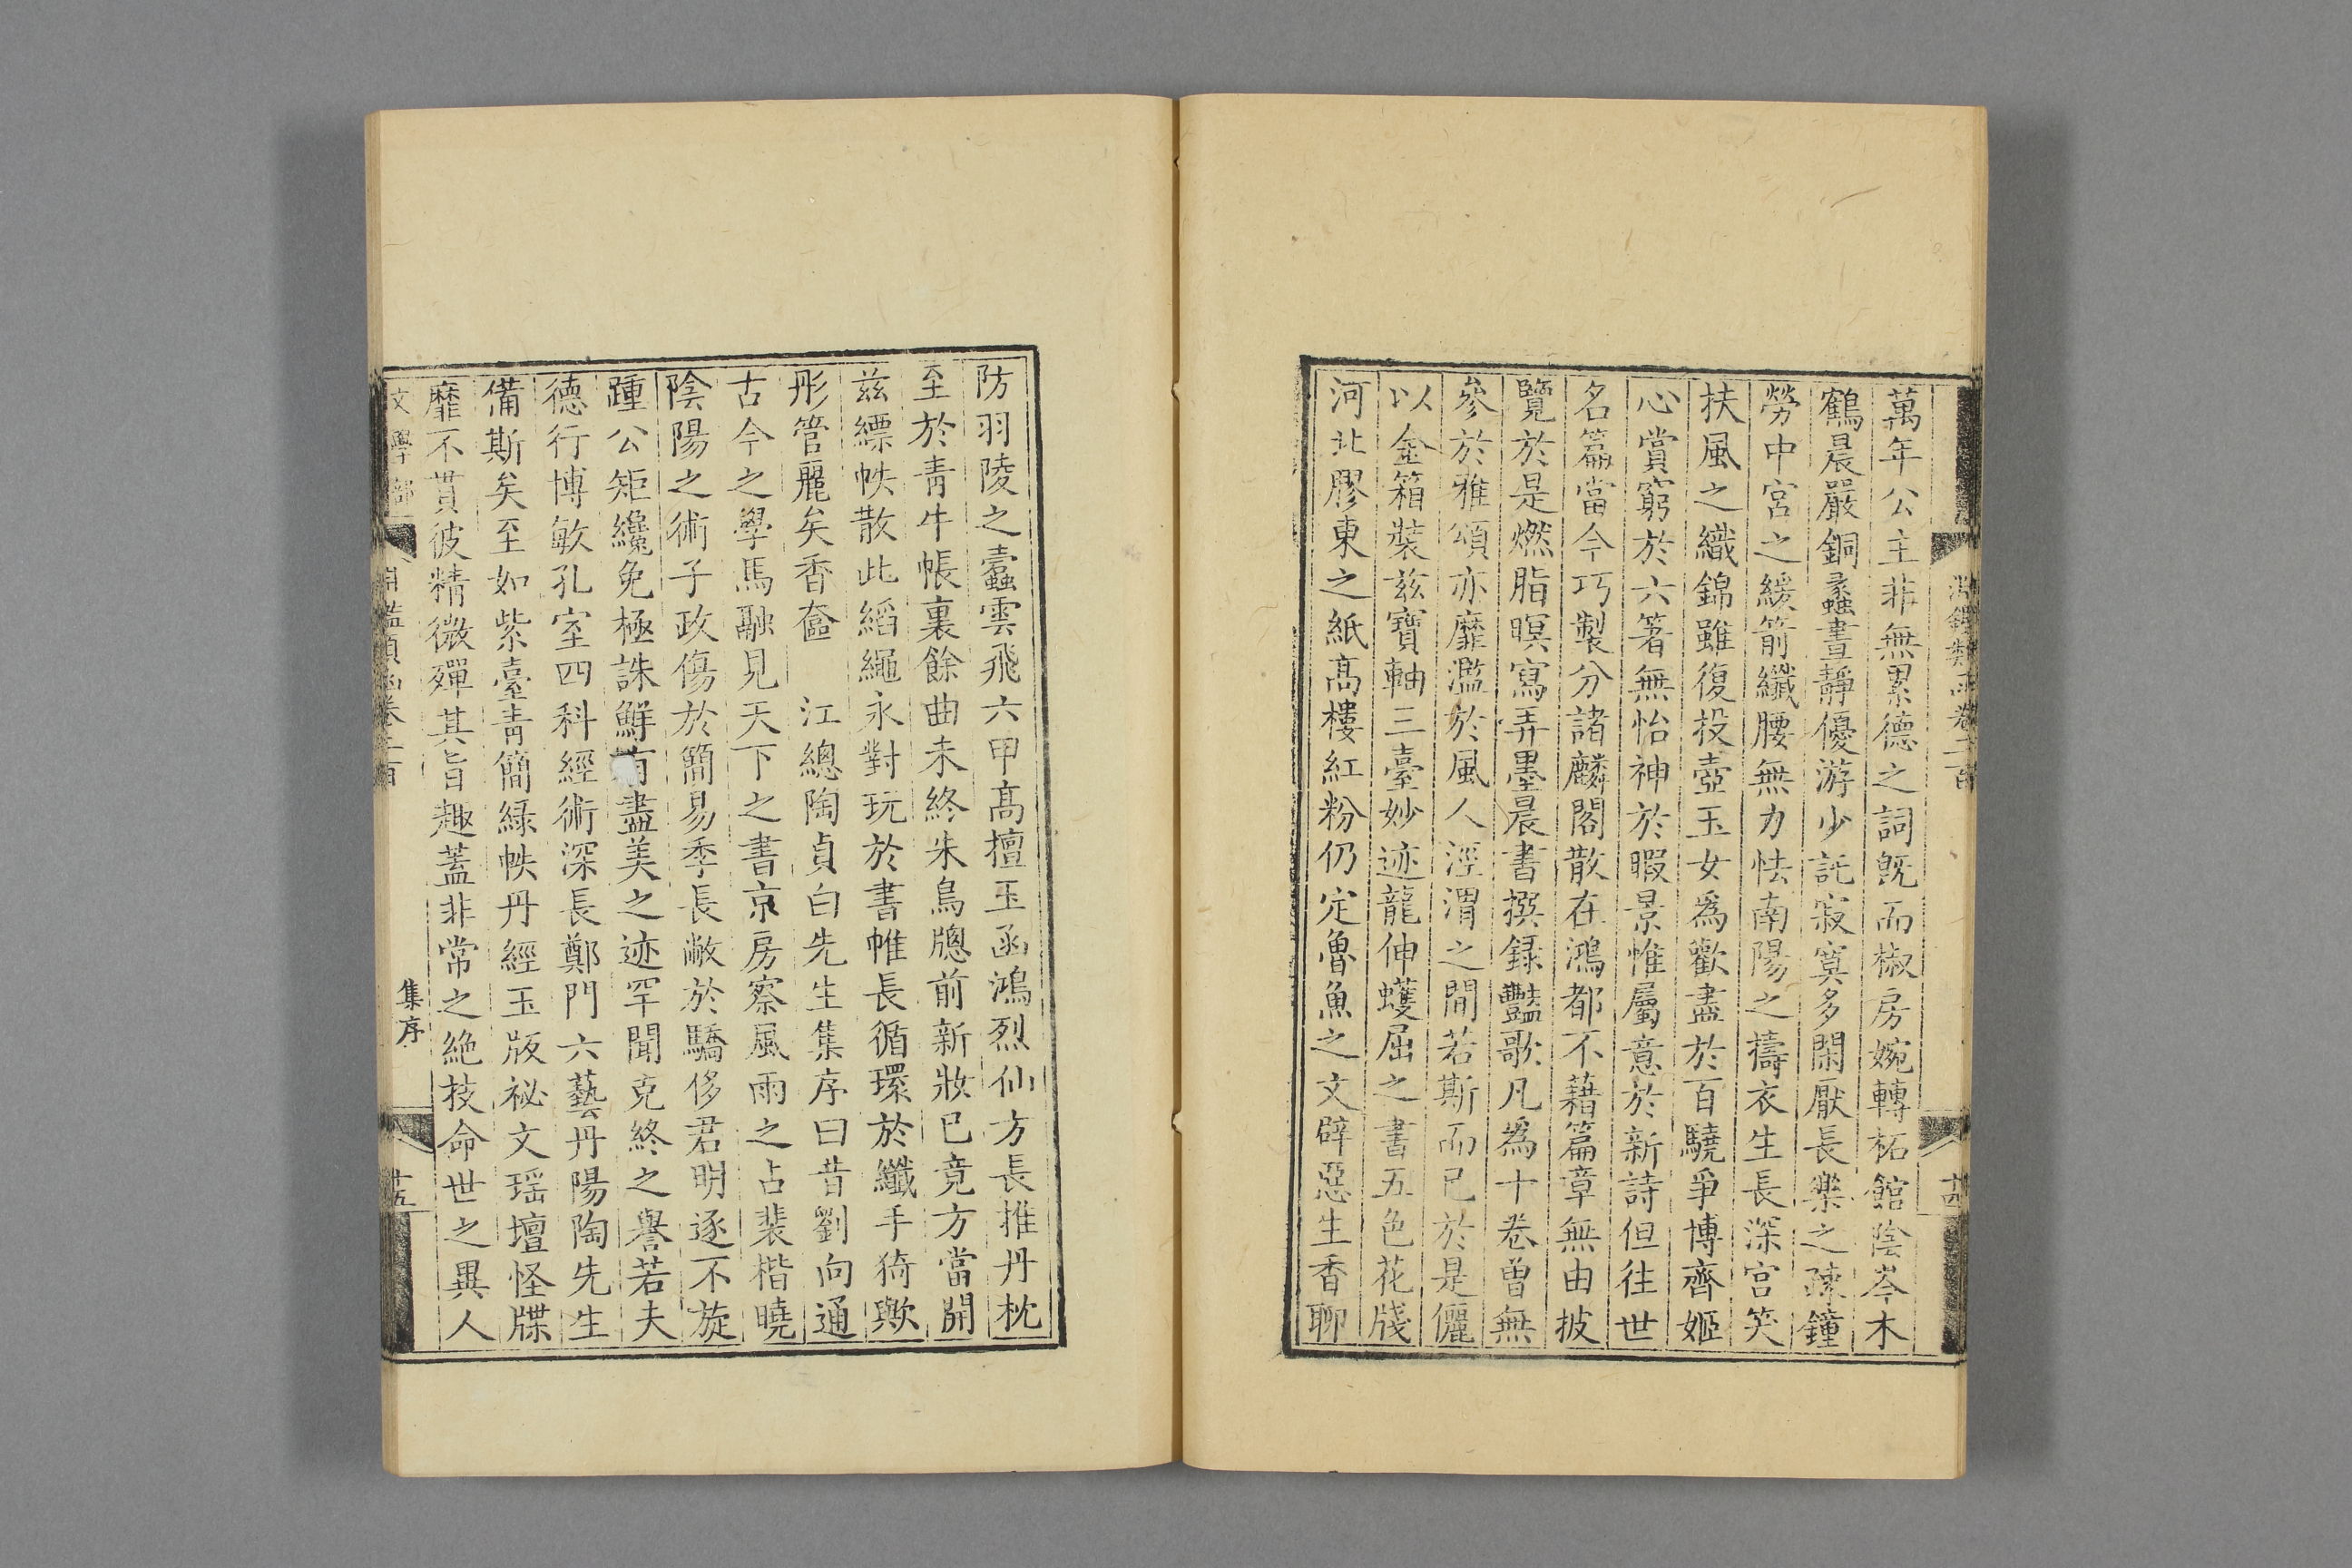 淵鑑類函卷二百
十四
萬年公主非無累德之詞旣而椒房婉轉柘館陰岑木
鶴晨嚴銅蠡晝靜優游少託寂寞多閑厭長樂之疎鐘
勞中宮之緩箭纖腰無力怯南陽之擣衣生長深宫笑
扶風之織錦雖復投壺玉女爲歡盡於百驍爭博齊姬
心賞窮於六箸無怡神於暇景惟屬意於新詩但往世
名篇當今巧製分諸麟閣散在鴻都不藉篇章無由披
覽於是燃脂暝寫弄墨晨書撰録豔歌凡爲十卷曾無
參於雅頌亦靡濫於風人涇渭之間若斯而已於是儷
以金箱裝兹寶軸三臺妙迹龍伸蠖屈之書五色花牋
河北膠東之紙髙樓紅粉仍定魯魚之文辟惡生香聊
防羽陵之蠹雲飛六甲髙擅玉函鴻烈仙方長推丹枕
至於靑牛帳裏餘曲未終朱鳥牕前新妝已竟方當開
兹縹帙散此縚繩永對玩於書帷長循環於纖手猗歟
彤管麗矣香奩　江總陶貞白先生集序曰昔劉向通
古今之學馬融見天下之書京房察風雨之占裴楷曉
陰陽之術子政傷於簡易季長敝於驕侈君明逐不旋
踵公矩纔免極誅鮮有盡美之迹罕聞克終之譽若夫
德行博敏孔室四科經術深長鄭門六藝丹陽陶先生
備斯矣至如紫臺靑簡緑帙丹經玉版祕文瑶壇怪牒
靡不貫彼精微殫其旨趣蓋非常之絶技命世之異人
文學部
淵鑑類函卷二百
集序
十五